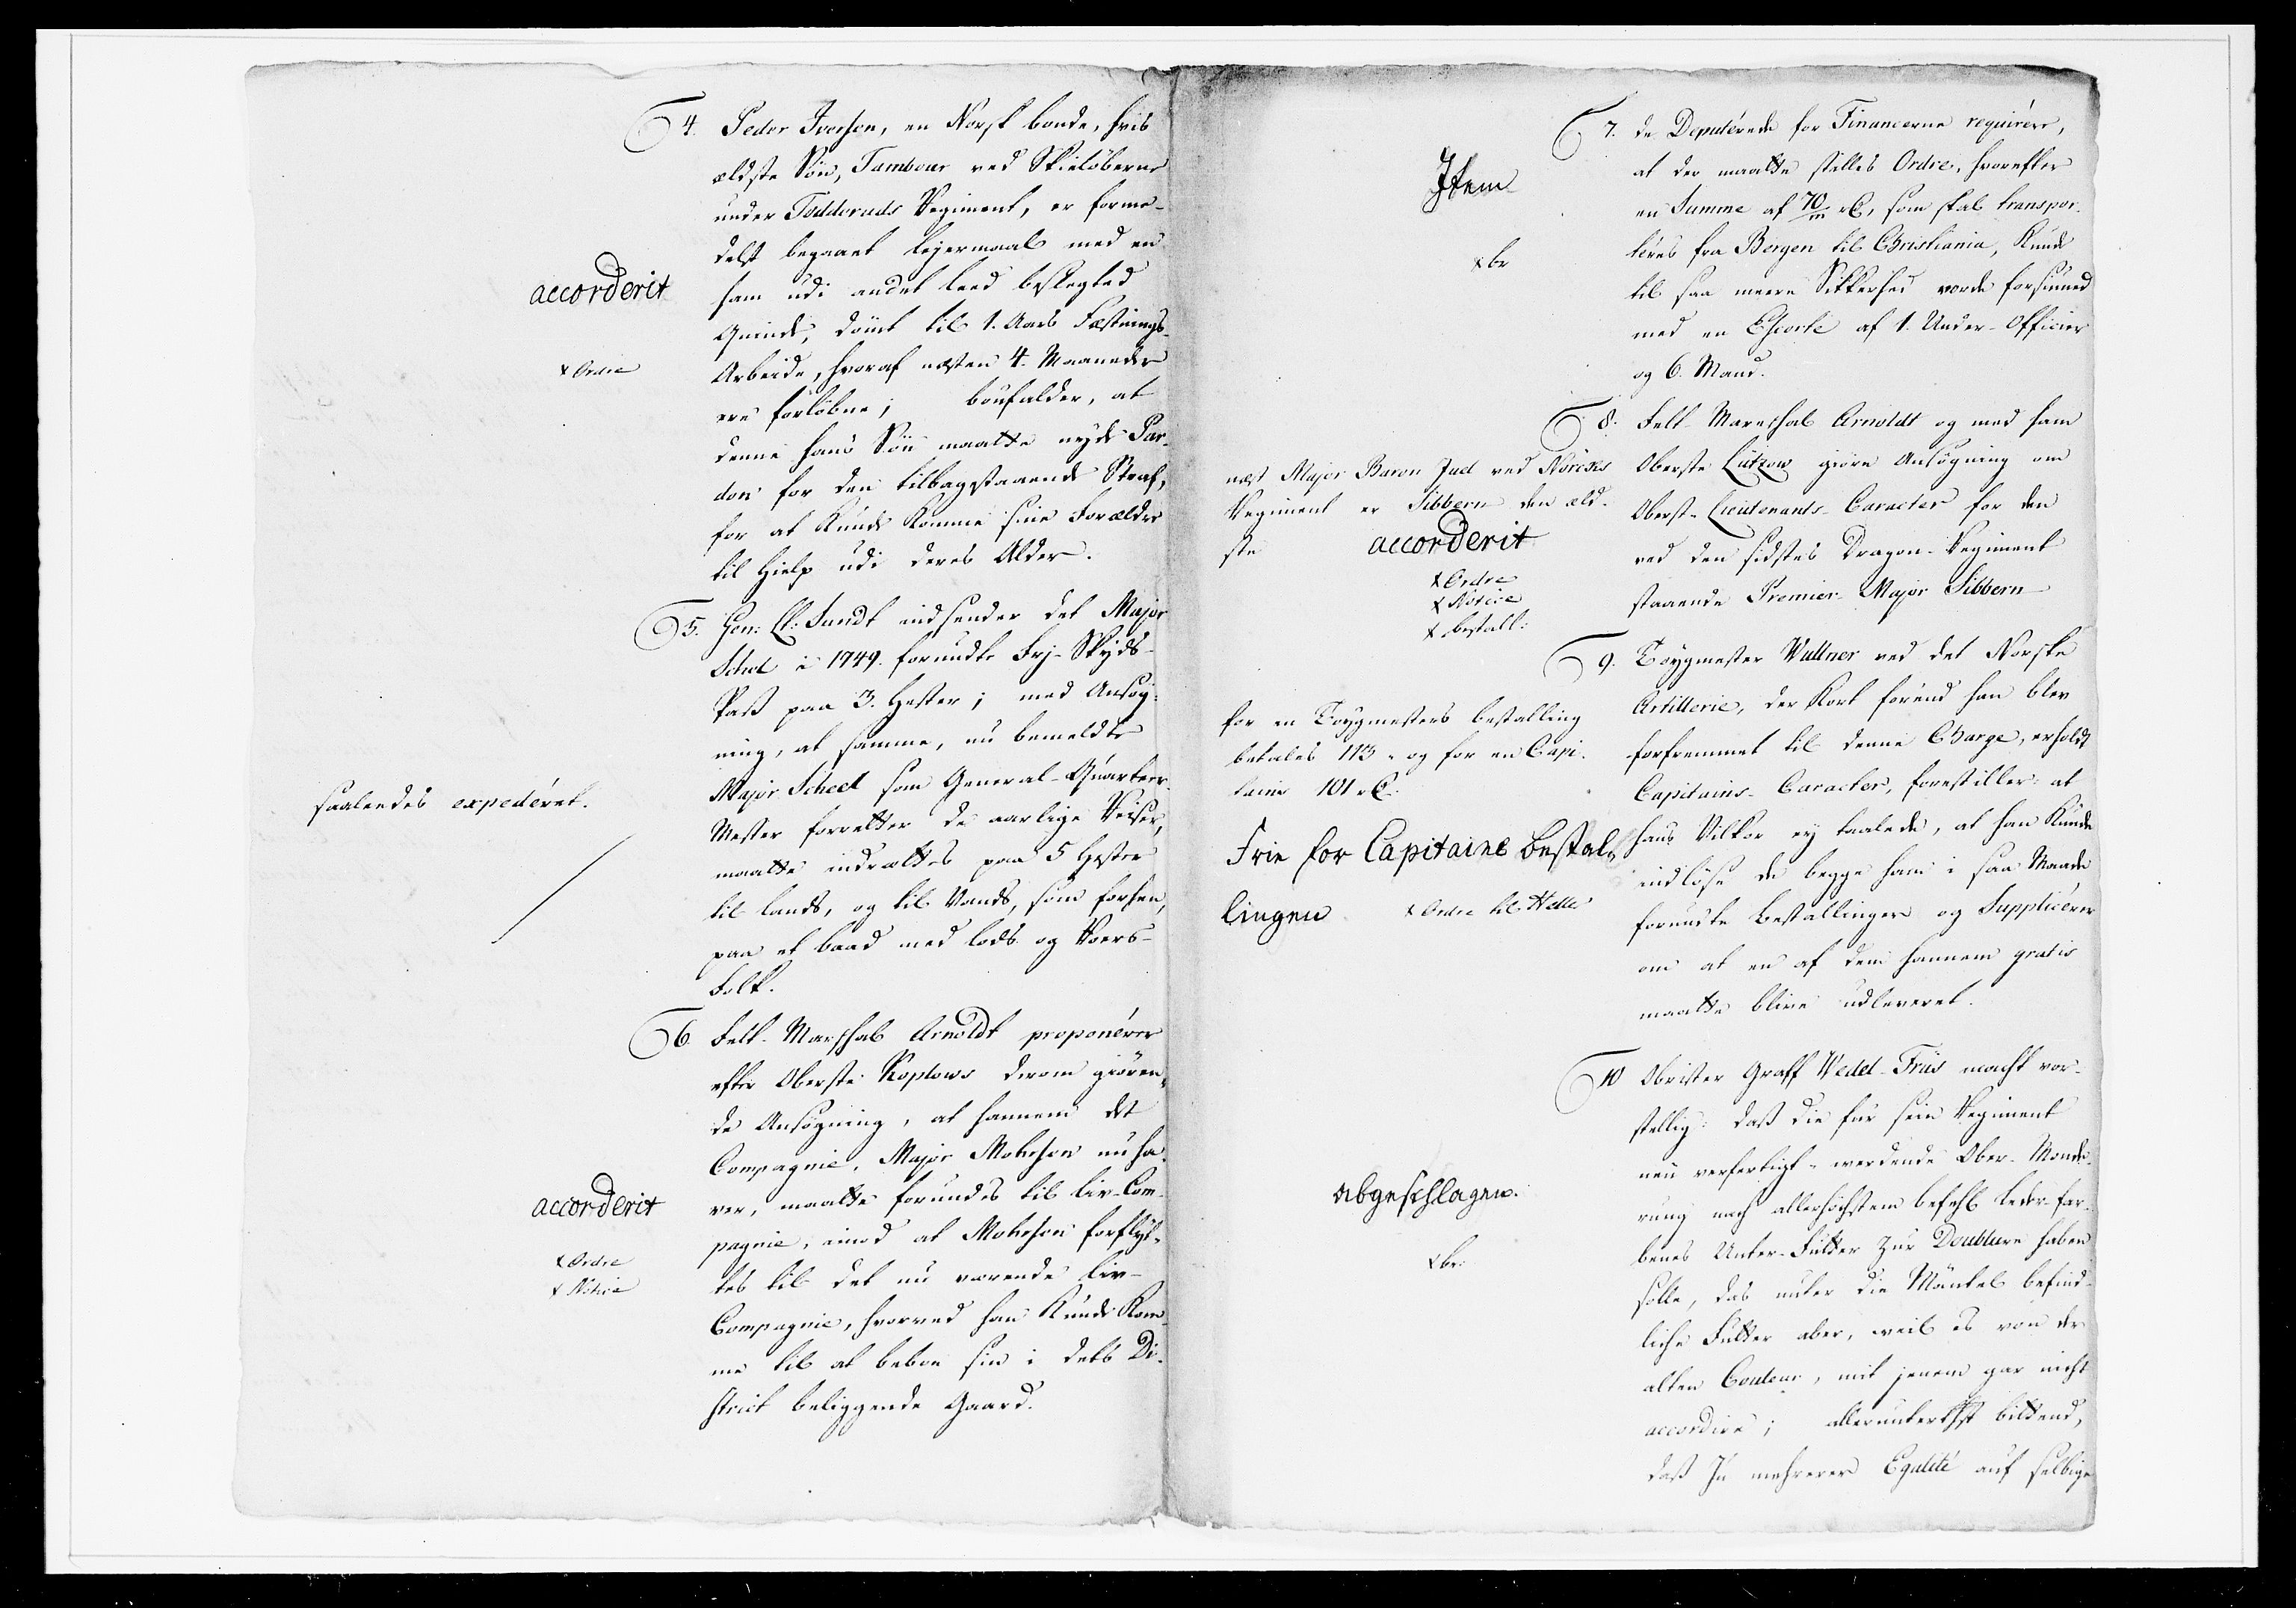 4. Peder Iversen, en Norsk bonde, hvis
ældste Søn, Tambour ved Skieløberne
under Todderuds Regiment, er forme-
delst begaaet Lejermaal med en
ham udi andet Leed beslegted
Qvinde, dömt til 1. Aars Fæstnings-
Arbeide, hvoraf næsten 4. Maaneder
ere forløbne; bönfalder, at
denne hans Søn maatte nyde Par-
don for den tilbagestaaende Straf,
for at kunde komme sine Forældre
til Hielp udi deres Alder.
accorderit
x Ordre
5. Gen: Lt: Sundt indsender det Major
Scheel i 1749. forundte Frj-Skyds-
Pass paa 3. Hester; med Ansøg-
ning, at samme, nu bemeldte
Major Scheel som General-Qvarteer-
Mester forretter de aarlige Reiser,
maatte indrættes paa 5 Hester
til Lands, og til Vands, som forhen,
paa et baad med Lods og Roers-
Folk.
saaledes expederet.
6. Felt-Marschal Arnoldt proponérer
efter Oberste Koplows derom giøren-
de Ansøgning, at hannem det
Compagnie, Major Motzfeldt nu ha-
ver, maatte forundes til Liv-Com-
pagnie, imod at forflyt-
tes til det nu værende Liv-
Compagnie, hvorved han kunde kom-
me til at beboe sin i dets Di-
strict beliggende Gaard.
accorderit
x Ordre
x Notice
7. de Deputérede for Financerne requirére,
at der maatte stilles Ordre, hvorefter
en Summe af 70/m rC, som skal transpor-
téres fra Bergen til Christiania, kunde
til saa meere Sikkerhed vorde forsiuned
med en Escorte af 1. Under-Officier
og 6. Mand.
Item
x br
8. Felt-Marschal Arnoldt og med ham
Oberste Lützow giøre Ansøgning om
Oberst-Lieutenants-Caracter for den
ved den sidstes Dragon-Regiment
staaende Premier-Major Sibbern
næst Major Baron Juel ved
Regiment er Sibbern den æld-
ste
accorderit
x Ordre
x Notice
x bestall:
9. Toygmester Wullner ved det Norske
Artillerie, der kort forend han blev
forfremmet til denne Charge, erholdt
Capitains-Caracter, forestiller: at
hans Vilkor ey taalede, at han kunde
indløse de begge ham i saa Maade
forundte Bestallinger og Supplicérer
om at en af dem hannem gratis
maatte blive udleveret.
for en Toygmesters bestalling
betales 113 - og for en Capi-
tains 101 rC.
Frie for Capitaine bestal-
lingen
x Ordre til
10 Obrister Graff Wedel-Friis macht vor-
stellig: dass die für sein Regiment
neu verfertigt-werdende Ober-Monde-
rung nach allerhöchstem befehl leder-far-
benes Unter-Futter zur Doublure haben
solle, das unter die Mäntel befind-
liche Futter aber, weil es von der
alten Couleur, mit jenem gar nicht
accordire; allerunterthst bittend,
dass zu mehrerer Egalité auf selbige
abgeschlagen.
x br: